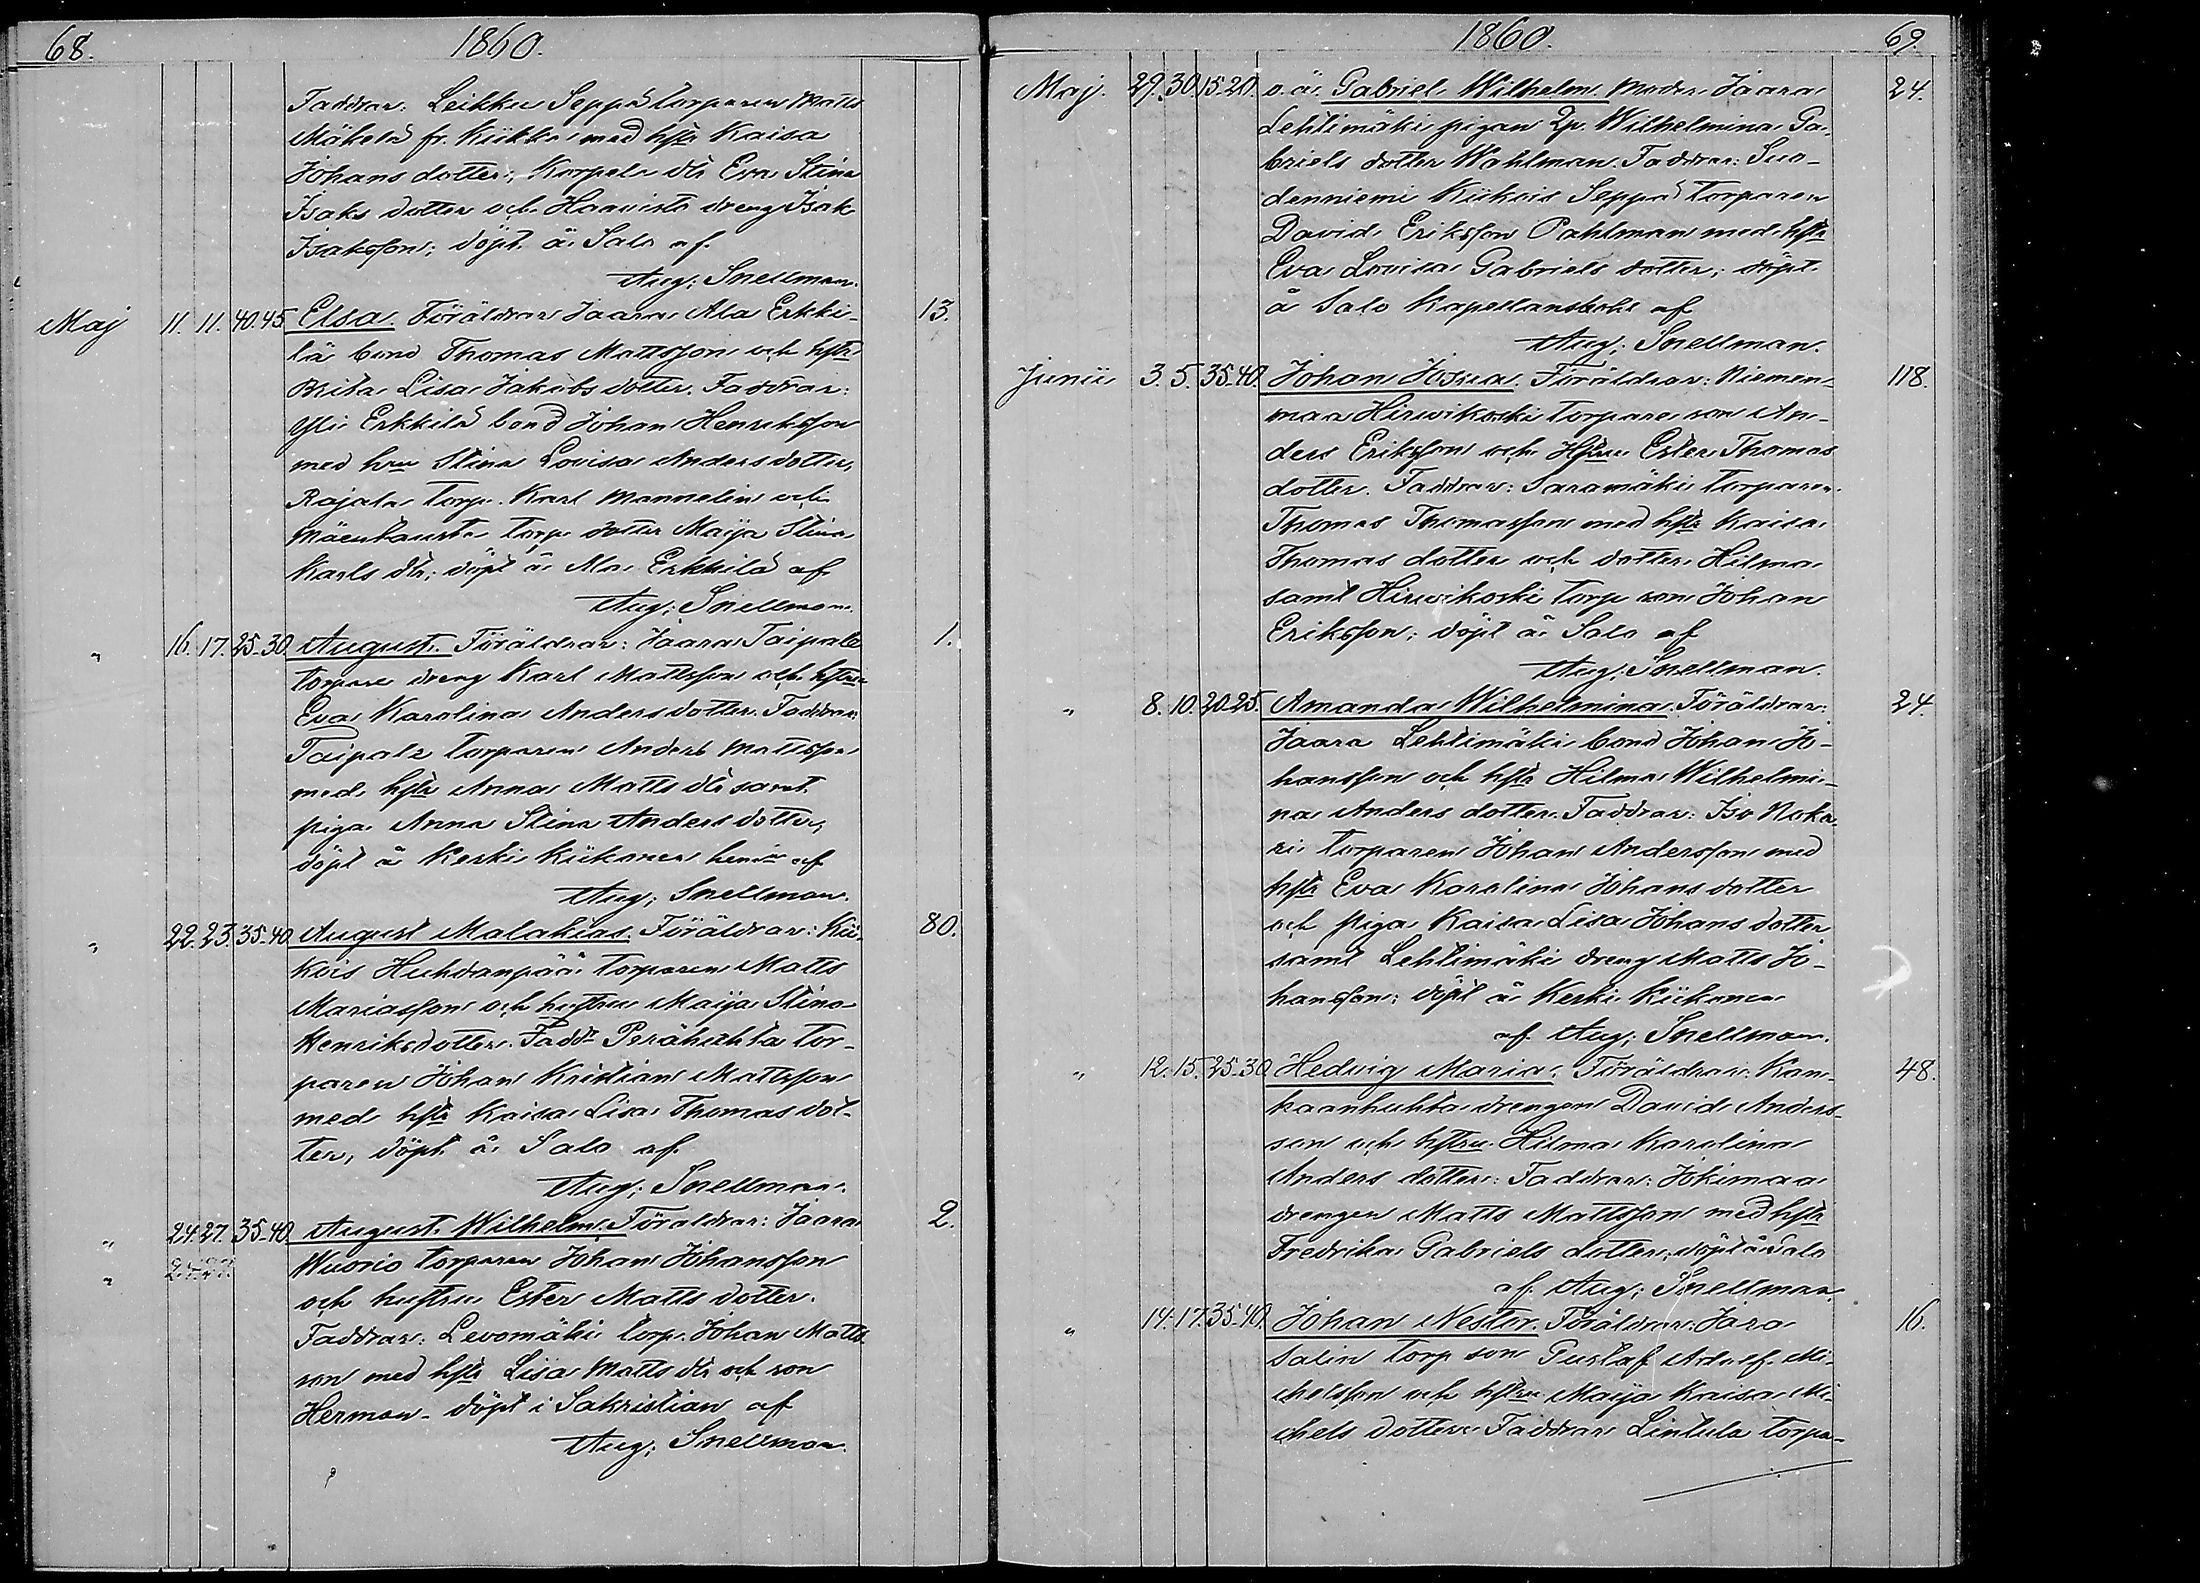 68. 1860.
Faddrar: Leikku Seppä torparen Matts
Mäkelä fr. Kiikka med hstr Kaisa
Johans dotter, Korpela dtr Eva Stina
Isaks dotter och Haavisto dreng Isak
Isaksson; döpt å Salo af
Aug; Snellman.
Maj 11. 11. 40.45 Elsa. Föräldrar Jaara Ala Erkki- 13.
lä bond Thomas Mattsson och hstr
Brita Lisa Jakobs dotter. Faddrar:
Yli Erkkilä bond Johan Henriksson
med hru Stina Lovisa Anders dotter,
Rajala torp. Karl Mannelin och
torp. dotter Maija Stina
Karls dtr; döpt å Ala Erkkilä af
Aug; Snellman.
" 16. 17. 25-30 August. Föräldrar: Jaara Taipale 1.
torpare dreng Karl Mattsson och hstru
Eva Karolina Anders dotter. Faddrar:
Taipale torparen Anders Mattsson
med hstr Anna Matts dtr samt
piga Anna Stina Anders dotter,
döpt å Keski Kiikonen af
Aug; Snellman.
" 22. 23. 35-40 August Malakias. Föräldrar: Kii- 80.
kois Huhdanpää torparen Matts
Mariasson och hustru Maija Stina
Henriksdotter. Faddr Perähuhta tor-
paren Johan Kristian Mattsson
med hstr Kaisa Lisa Thomas dot-
ter, döpt å Salo af
Aug; Snellman.
" 24. 27. 35-40 August Wilhelm. Föräldrar: Jaara 2.
" 24. 27. Wuorio torparen Johan Johansson
och hustru Ester Matts dotter.
Faddrar: Levomäki torp. Johan Matts
son med hstr Lisa Matts dtr och son
Herman. döpt i Sakristian af
Aug; Snellman.
1860. 69.
Maj. 29. 30. 15-20. o. ä. Gabriel Wilhelm. Moder: Jaara 24.
Lehtimäki pigan Qp. Wilhelmina Ga-
briels dotter Wahlman. Faddrar: Suo-
denniemi Kiikois Seppä torparen
David Eriksson Pahlman med hstr
Eva Lovisa Gabriels dotter; döpt
å Salo Kapellansbohl af
Aug; Snellman.
Junii 3. 5. 35-40. Johan Josua. Föräldrar: Niemen- 118.
maa Hirvikoski torpare son An-
ders Eriksson och Hstru Ester Thomas
dotter. Faddrar: Saramäki torparen
Thomas Thomasson med hstr Kaisa
Thomas dotter och dotter Hilma
samt Hirvikoski torp son Johan
Eriksson; döpt å Salo af
Aug; Snellman.
" 8. 10. 20.25. Amanda Wilhelmina. Föräldrar: 24.
Jaara Lehtimäki bond Johan Jo-
hansson och hstr Hilma Wilhelmi-
na Anders dotter. Faddrar: Iso Noka-
ri torparen Johan Andersson med
hstr Eva Karolina Johans dotter
och piga Kaisa Lisa Johans dotter
samt Lehtimäki dreng Matts Jo-
hansson; döpt å Keski Kiikonen
af Aug; Snellman.
" 12. 15. 25-30. Hedvig Maria. Föräldrar: Kan- 48.
kaanhuhta drengen David Anders-
son och hstru Hilma Karolina
Anders dotter. Faddrar: Jokimaa
drengen Matts Mattsson med hstr
Fredrika Gabriels dotter, döpt å Salo
af Aug; Snellman.
" 14. 17. 35-40. Johan Nestor. Föräldrar: Jara 16.
Salin torp son Gustaf Adolf Mi-
chelsson och hstru Maija Kaisa Mi-
chels dotter. Faddrar Lintula torpa-